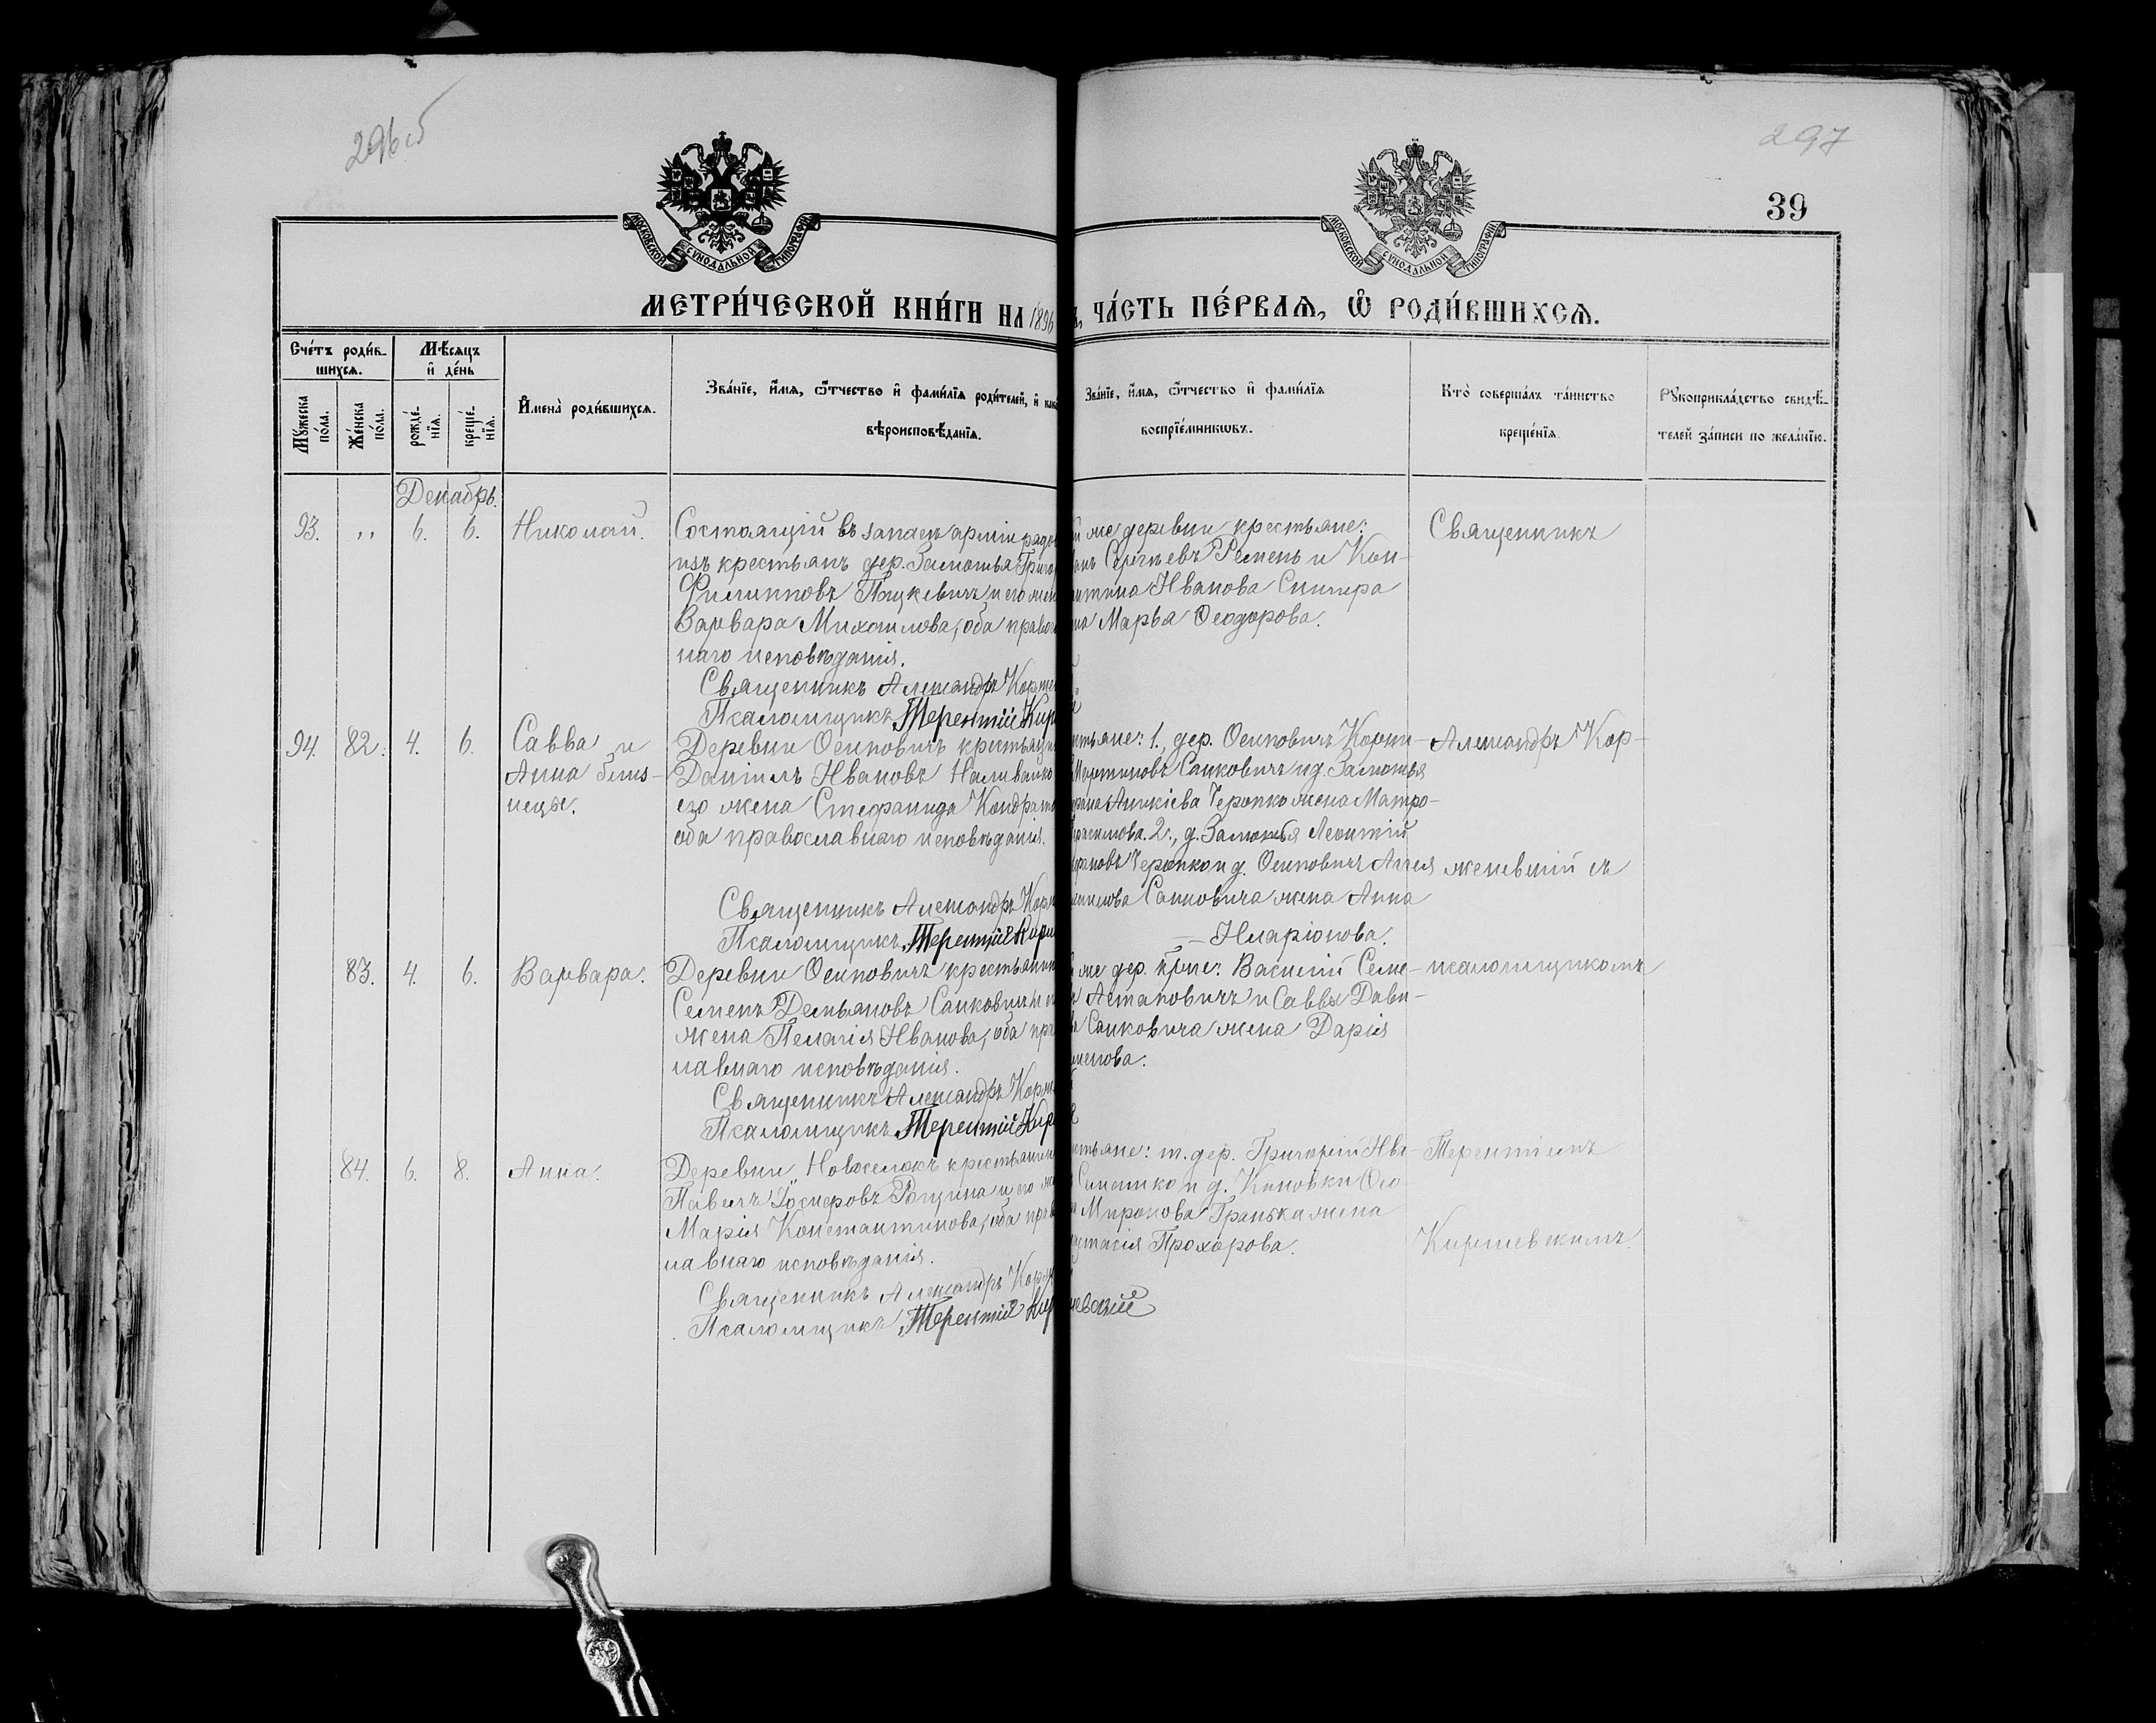 296 об
297
39
МОСКОВСКОЙ СѴНОДАЛЬНОЙ ТИПОГРАФІИ
МОСКОВСКОЙ СѴНОДАЛЬНОЙ ТИПОГРАФІИ
МЕТРИ́ЧЕСКОЙ КНИ́ГИ НА 1896
ЧА́СТЬ ПЕ́РВАѦ, Ѡ҆ РОДИ́ВШИХСѦ.
Счéтъ роди́в-
шихсѧ.
Мѣ́сѧцъ
и҆ де́нь
Мꙋ́жеска
по́ла.
Же́нска
по́ла.
рожде́-
нїѧ.
креще́-
нїѧ.
И҆мена̀ роди́вшихсѧ.
Зва́нїе, и҆́мѧ, ѻ҆́тчество и҆ фами́лїѧ роди́телей, и҆
вѣроисповѣ́данїѧ.
Зва́нїе, и҆́мѧ, ѻ҆́тчество и҆ фами́лїѧ
воспрїе́мникѡвъ.
Кто̀ соверша́лъ та́инство
креще́нїѧ.
Рꙋкоприкла́дство свидѣ́-
телей за́писи по жела́нїю.
Декабрь.
93. „ 6. 6. Николай.
Состоящій въ запасѣ арміи рядо
изъ крестьянъ дер. Замостья Григо
Филипповъ Пацкевичъ и его жен
Варвара Михаилова, оба правос
наго исповѣданія.
Священникъ Александръ Корже
Псаломщикъ Терентій Кир
й же деревни крестьяне:
анъ Сергѣевъ Ремень и Кон-
антина Иванова Снигира
на Марѳа Ѳеодорова.
Священникъ
94. 82. 4. 6. Савва и
Анна близ-
нецы.
Деревни Осиповичъ крестьянин
Даніилъ Ивановъ Наливайко
его жена Стефанида Кондрат
оба православнаго исповѣданія.
Священникъ Александръ Корж
Псаломщикъ Терентій Кири
стьяне: 1., дер. Осиповичъ Корни-
Мартиновъ Санковичъ и д. Замостья
Аникіева Черопко жена Матро-
2., д. Замостья Леонтій
Черопко и д. Осиповичъ
Санковича жена Анна
Иларіонова.
Александръ Кор-
женевскій съ
83. 4. 6. Варвара.
Деревни Осиповичъ крестьянин
Семенъ Демьяновъ Санковичъ и е
жена Пелагія Иванова, оба пра
лавнаго исповѣданія.
Священникъ Александръ Корж
Псаломщикъ Терентій Кир
же дер. крне: Василій Семе-
Астаповичъ и Саввы Дави-
ва Санковича жена Дарія
менова.
псаломщикомъ
84. 6. 8. Анна.
Деревни Новоселокъ крестьянин
Павелъ Рощина и его же
Марія Константинова, оба прав
лавнаго исповѣданія.
Священникъ Александръ Корж
Псаломщикъ Терентій Киричевскій
стьяне: т. дер. Григорій Ива-
и д. Кановки Ѳео-
Миронова Гранька жена
стасія Прохорова.
Терентіемъ
Киричевскимъ.